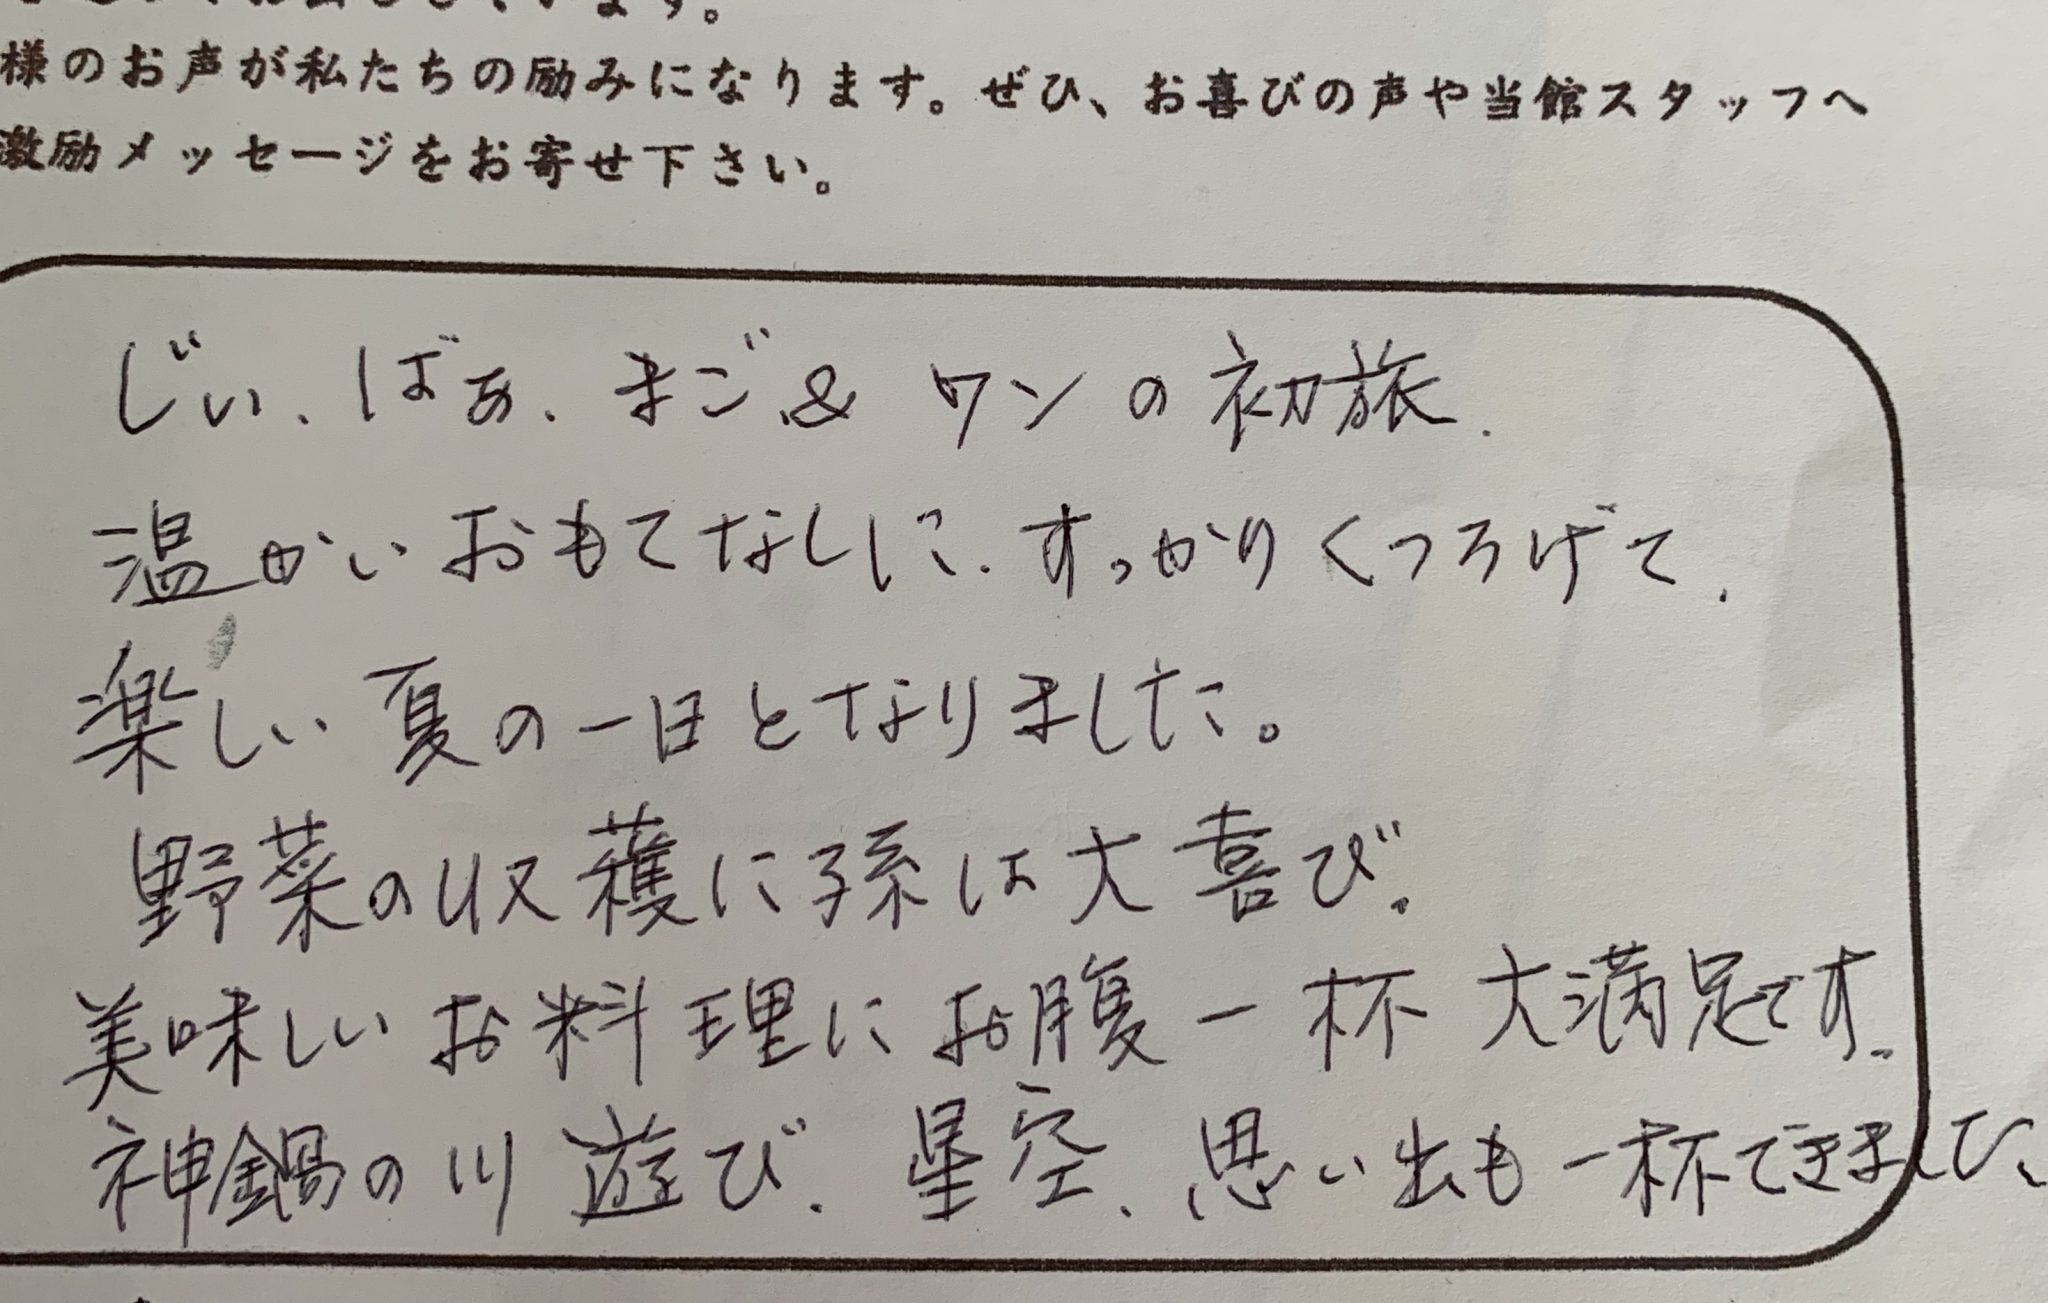 います。
様のお声が私たちの励みになります。ぜひ、お喜びの声や当館スタッフへ
激励メッセージをお寄せ下さい。
じぃ、ばぁ、まご、& ワンの初旅、
温かいおもてなしに、すっかりくつろげて、
楽しい夏の一日となりました。
野菜の収穫に孫は大喜び。
美味しいお料理にお腹一杯 大満足です。
神鍋の川遊び、星空、思い出も一杯できました、